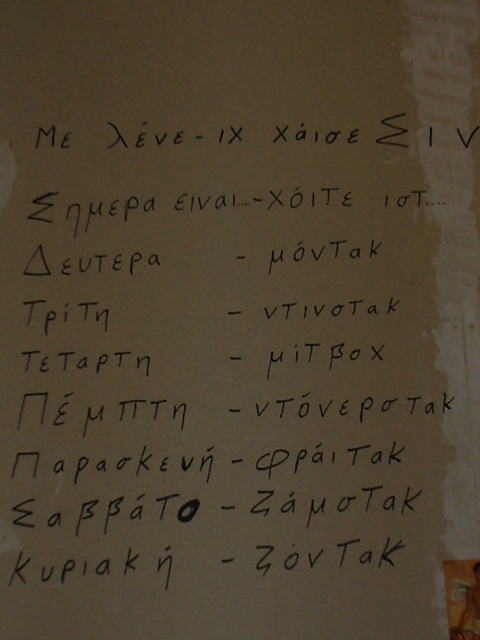 Με λένε - ιχ χάισε Σιν
Σημερα ειναι... - χόιτε ιστ....
Δευτερα - μόντακ
Τρίτη - ντινστακ
Τεταρτη - μίτβοχ
Πέμπτη - ντόνερστακ
Παρασκευή - φράιτακ
Σαββάτο - ζάμστακ
Κυριακή - ζόντακ